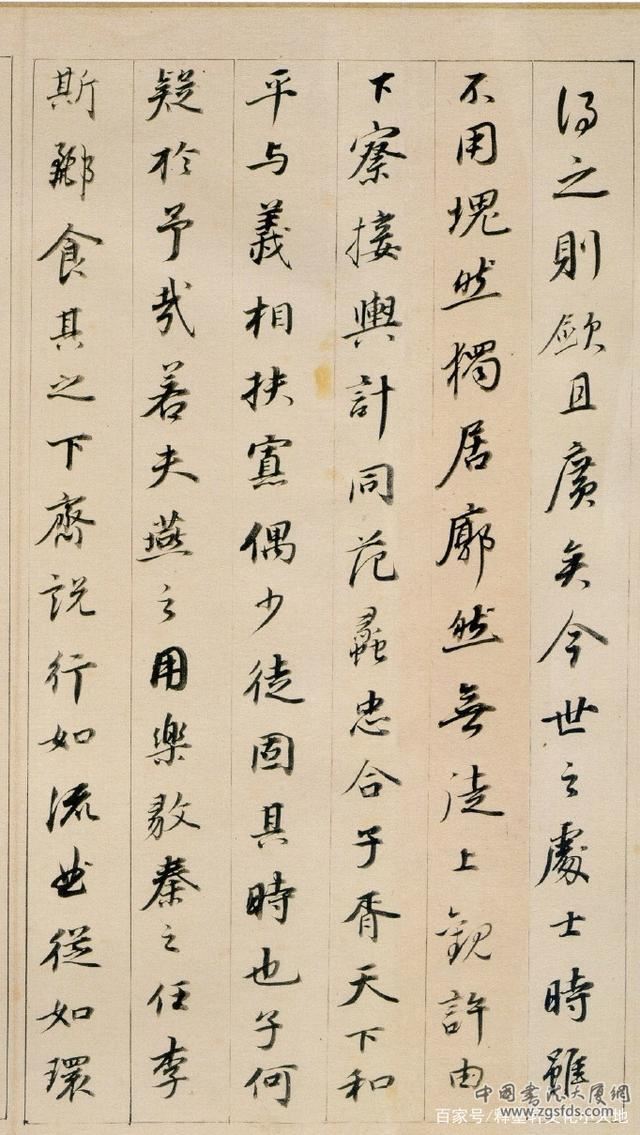 得之則敏且廣矣今世之處士時雖
不用塊然獨居廓然無徒上觀許由
下察接輿計同范蠡忠合子胥天下和
平与義相扶寡偶少徒固其時也子何
疑於予哉若夫燕之用樂毅秦之任李
斯酈食其之下齊說行如流曲從如環
中国书法大厦网
百家号/
www.zgsfds.com